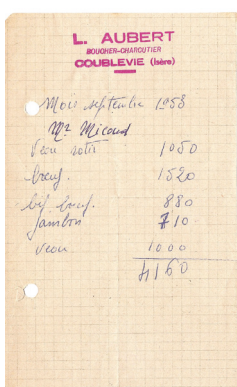 L. AUBERT
BOUCHER-CHARCUTIER
COUBLEVIE (Isère)
Mois septembre 1958
Mr Micoud
Veau rôti 1050
bœuf. 1520
bif bœuf. 880
Jambon 710
Veau 1000
4160